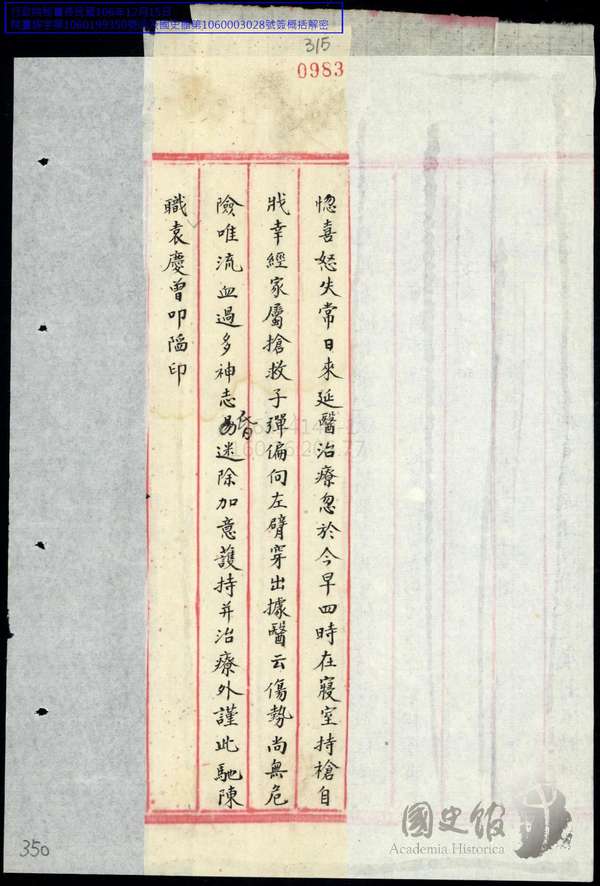 行政院秘書長民國106年12月15日
院臺綜字第1060199350號函及國史館第1060003028號簽概括解密
315
0983
惚喜怒失常日來延醫治療忽於今早四時在寢室持槍自
戕幸經家屬搶救子彈偏向左臂穿出據醫云傷勢尚無危
險唯流血過多神志昏迷除加意護持并治療外謹此馳陳
職袁慶曾叩陷印
350
國史館
Academia Historica